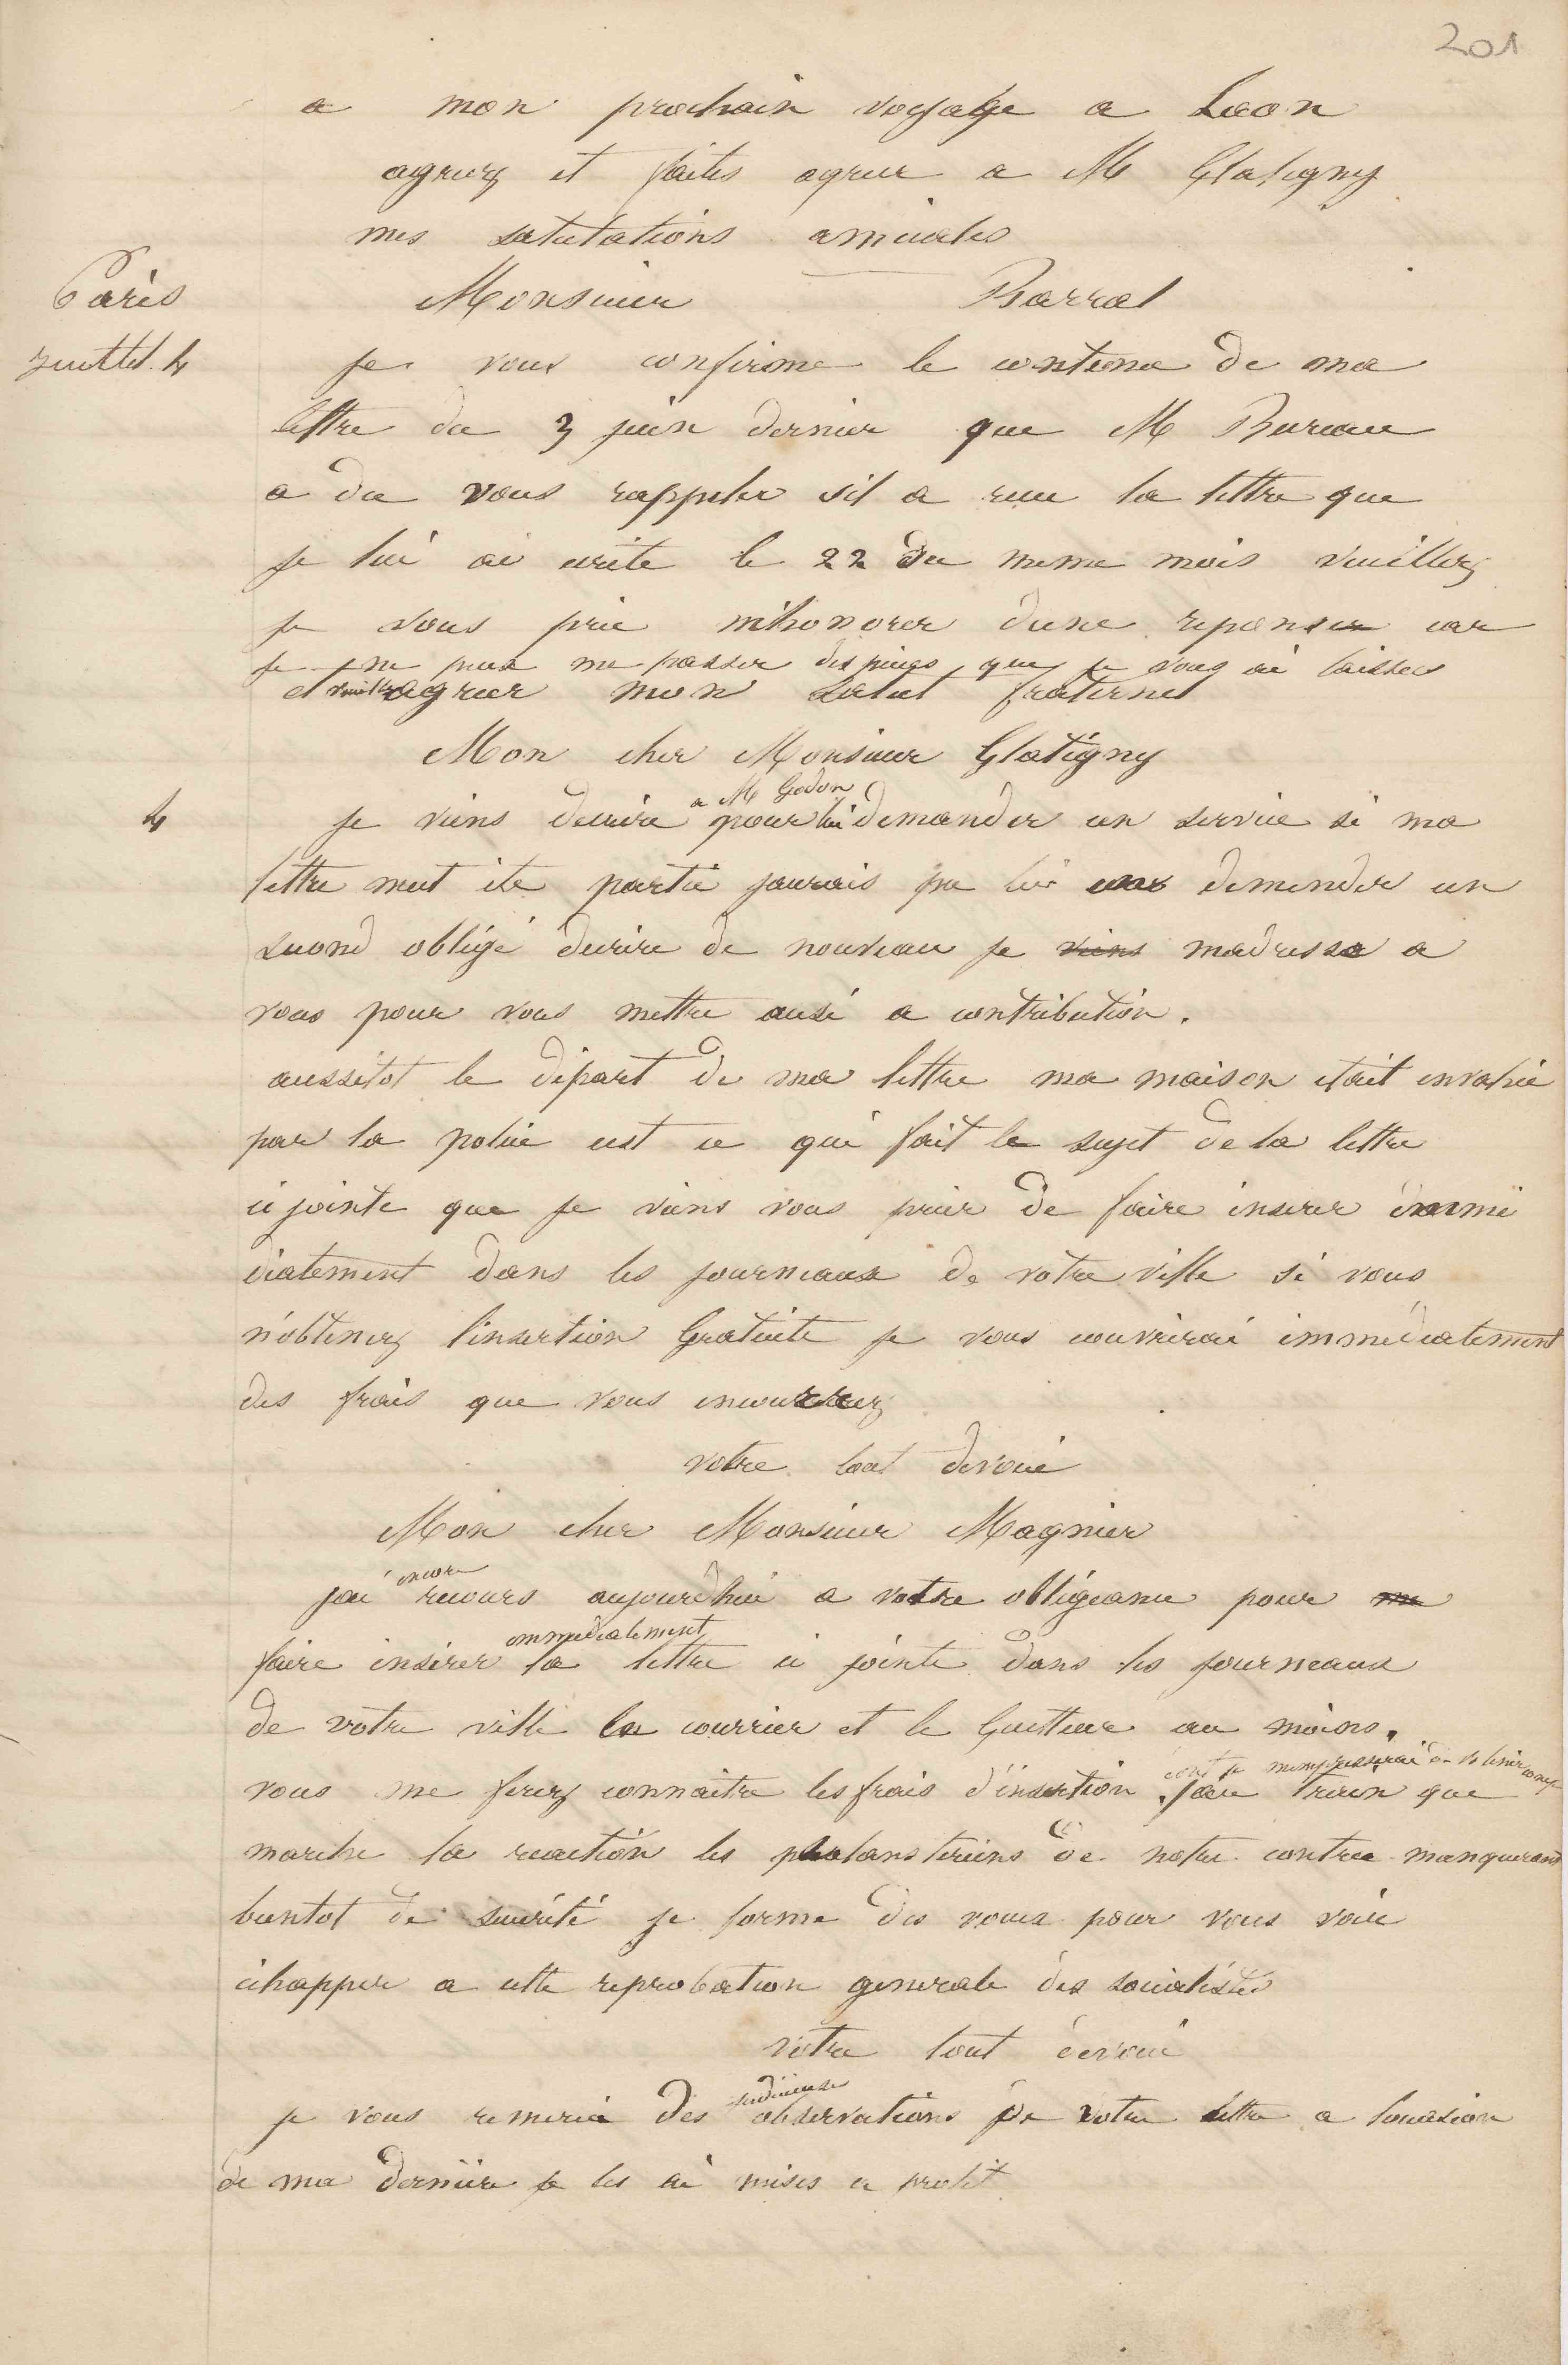 201
a mon prochain voyage a Laon
agreez et faites agreer a M Glatigny
mes salutations amicales
Paris
Monsieur Barral
juillet 4
je vous confirme le contenu de ma
lettre du 3 juin dernier que M Bureau
a du vous rappeler sil a recu la lettre que
je lui ai ecrite le 22 du meme mois veuillez
je vous prie m'honorer dune reponse car
je ne puis me passer des pieces que je vous ai laissees
et veuillez agreer mon salut fraternel
Mon cher Monsieur Glatigny
a M Godon
4
je viens decrire pour lui demander un service si ma
lettre neut ete partie jaurais pu lui en demander un
second obligé decrire de nouveau je viens madresse a
vous pour vous mettre ausi a contribution.
aussitot le départ de ma lettre ma maison etait envahie
par la police cest ce qui fait le sujet de la lettre
ci jointe que je viens vous prier de faire inserer immé
diatement dans les journeaux de votre ville si vous
n'obtenez l'insertion Gratuite je vous couvrirai immédiatement
des frais que vous encourrez
votre tout devoué
Mon cher Monsieur Magnier
encore
jai recours aujourdhui a votre obligeance pour
immediatement
faire insérer la lettre ci jointe dans les journeaux
de votre ville le courrier et le Guetteur au moins.
dont je mempresserai de vs tenir compte
vous me ferez connaitre les frais d'insertion. que
marche la reaction les phalansteriens de notre contree manqueront
bientot de sécurité je forme des voeux pour vous voir
échapper a cette reprobation generale des socialistes
votre tout devoué
judicieuses
je vous remercie des observations de votre lettre a loccasion
de ma derniére je les ai mises a profit